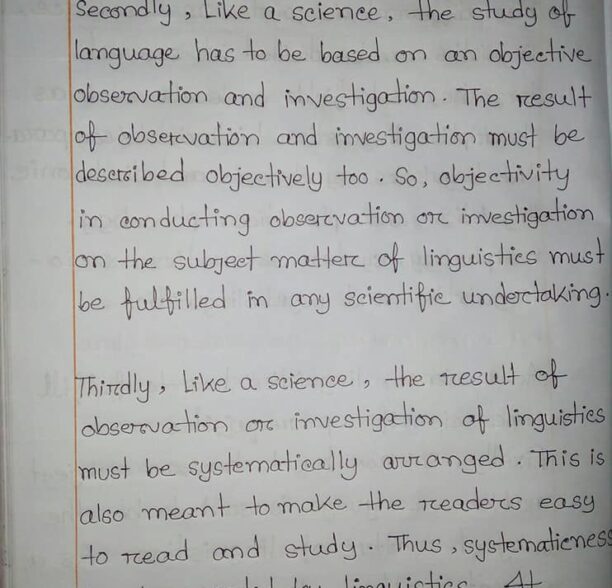 Secondly, Like a science, the study of
language has to be based on an objective
observation and investigation. The result
of observation and investigation must be
described objectively too. So, objectivity
in conducting observation or investigation
on the subject matter of linguistics must
be fulfilled in any scientific undertaking.
Thirdly, Like a science, the result of
observation or investigation of linguistics
must be systematically arranged. This is
also meant to make the readers easy
to read and study. Thus, systematicness
linguistics. At